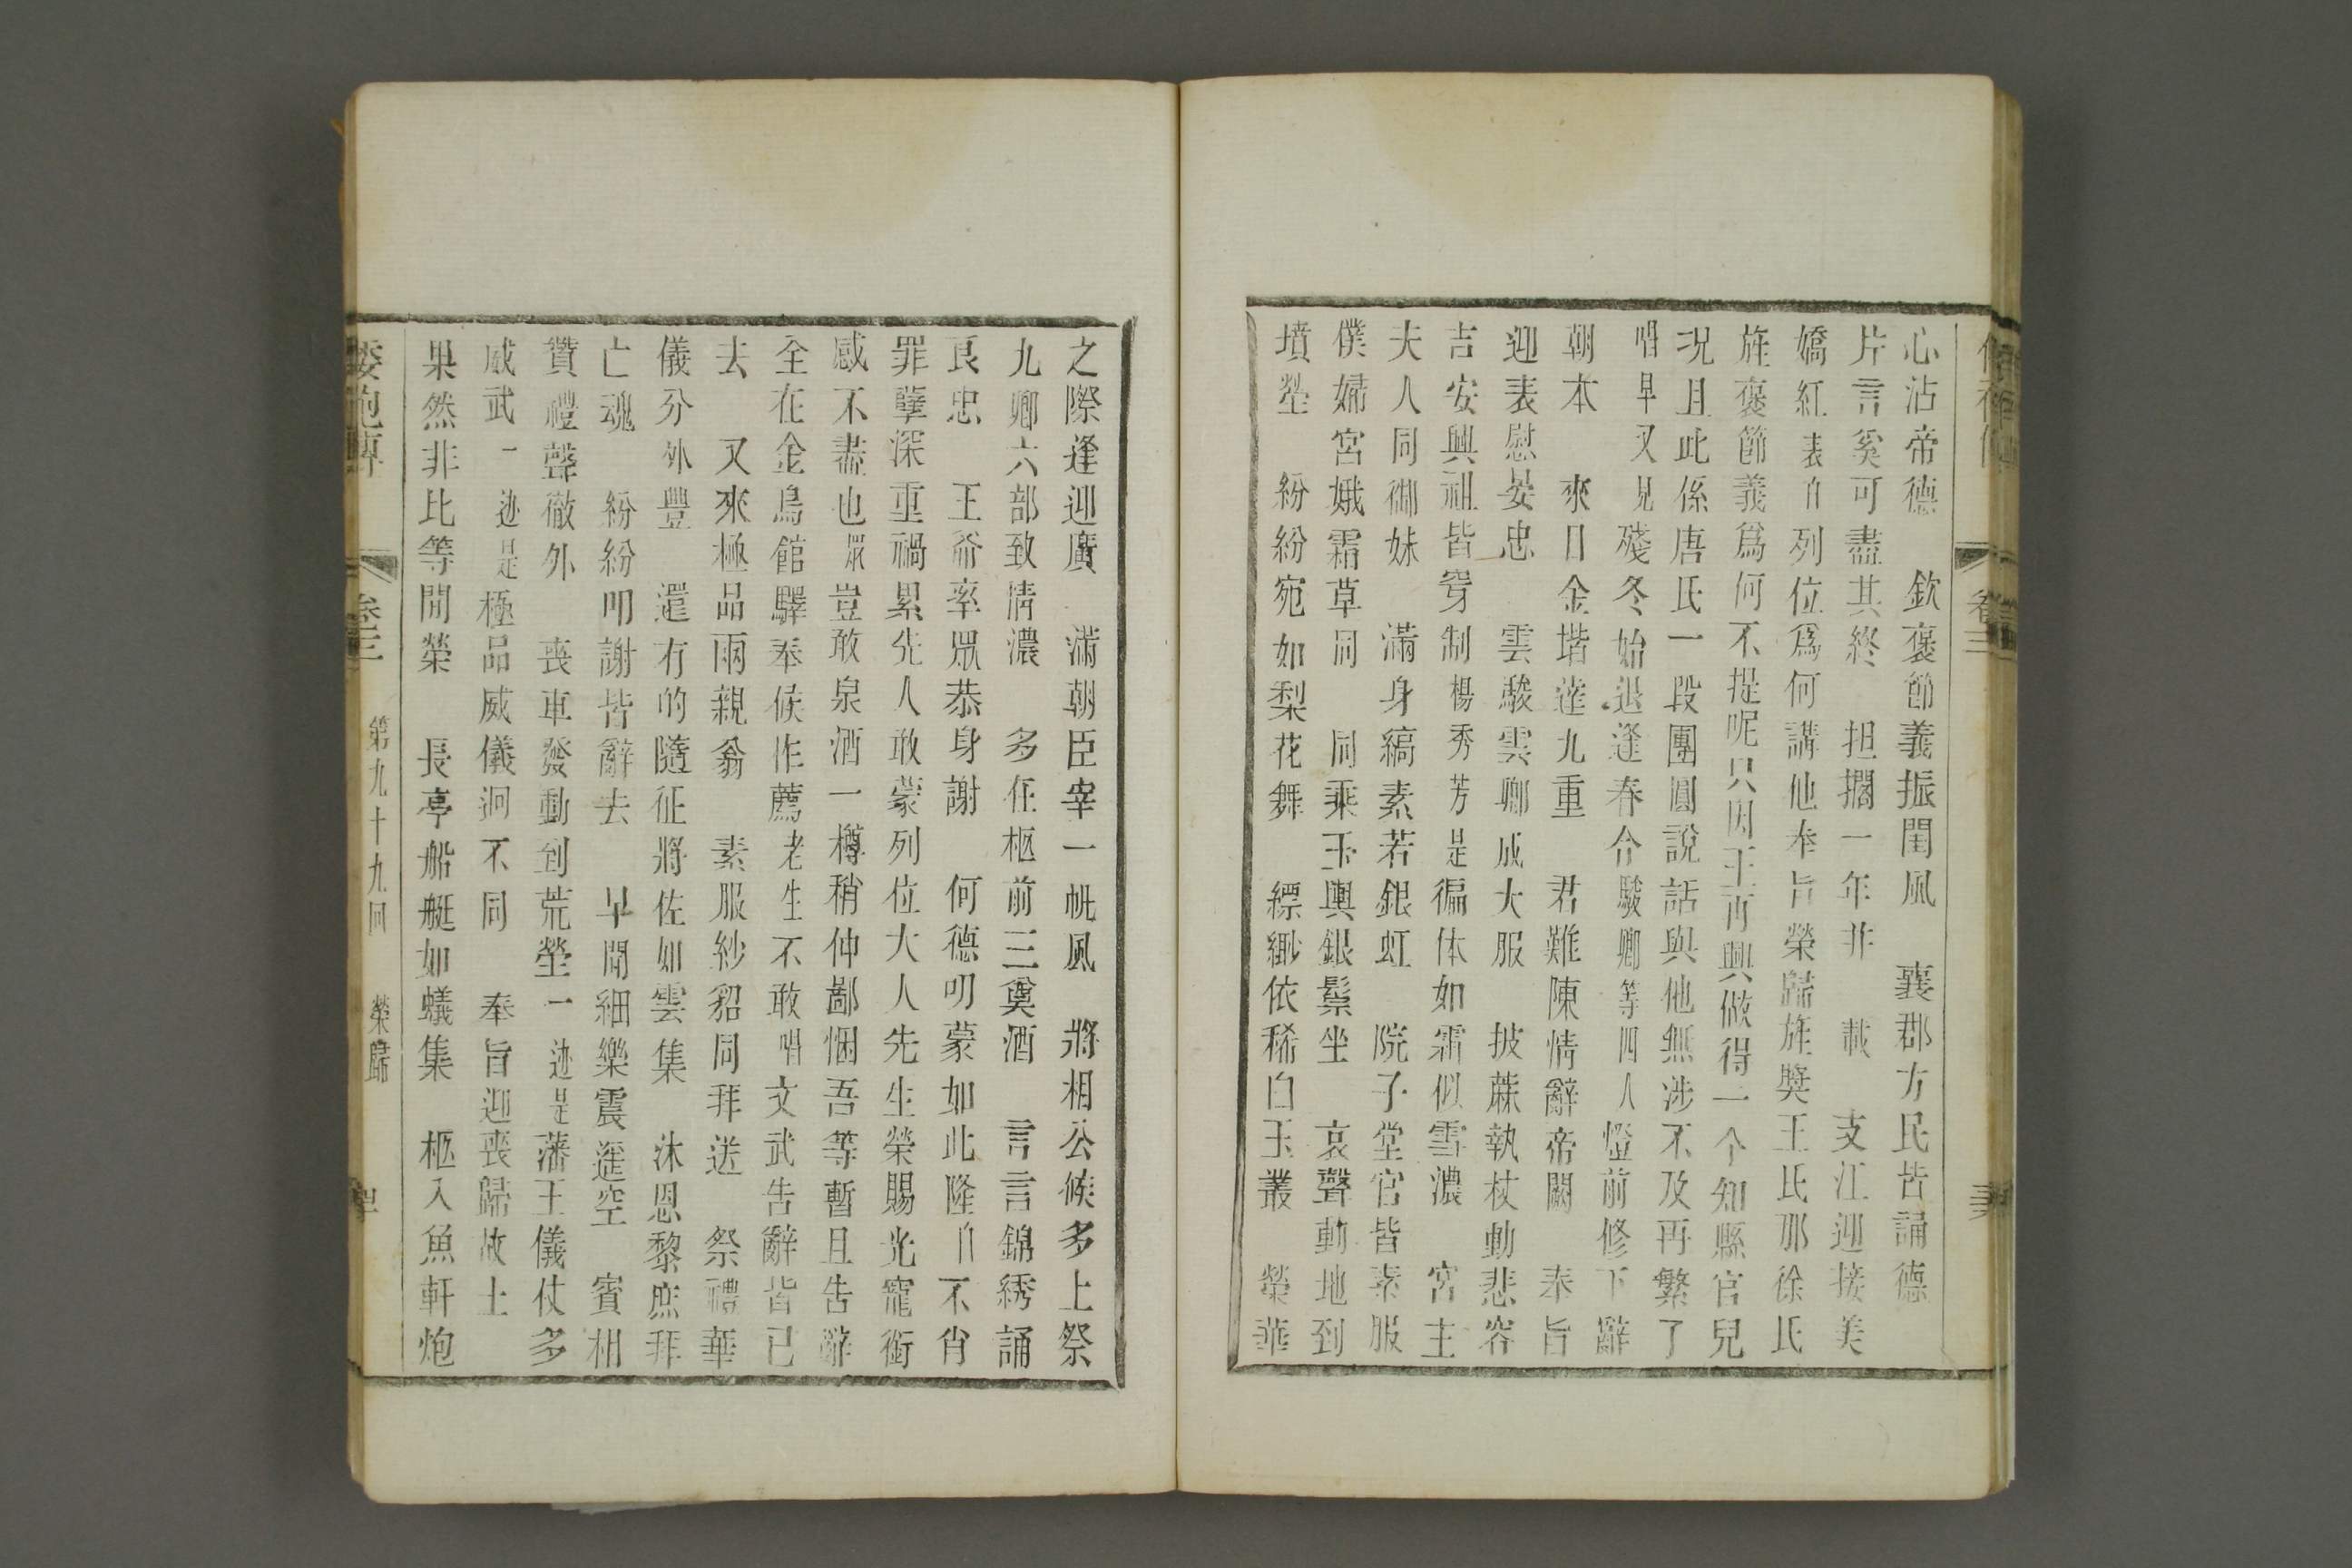 卷三
心沾帝德　欽褒節義振閨風　襄郡方民皆誦德
片言奚可盡其終　担擱一年非　載　支江迎接美
嬌紅表自列位爲何講他奉旨榮歸旌獎王氏那徐氏
旌褒節義爲何不提呢只因王再興做得一个知縣官兒
况且此係唐氏一段團圓說話與他無涉不及再繁了
唱早又見殘冬始退逢春令駿卿等四人燈前修下辭
朝本　來日金堦達九重　君難陳情辭帝闕　奉旨
迎表慰晏忠　雲駿雲卿成大服　披蔴執杖動悲容
吉安興祖皆穿制楊秀芳是徧体如霜似雪濃　宮主
夫人同御妹　滿身縞素若銀虹　院子堂官皆素服
僕婦宮娥霜草同　同乘玉輿銀鬃坐　哀聲動地到
墳塋　紛紛宛如梨花舞　縹緲依稀白玉叢　榮華
之際逢迎廣　滿朝臣宰一帆風　將相公候多上祭
九卿六部致情濃　多在柩前三奠酒　言言錦綉誦
良忠　王爺率眾恭身謝　何德叨蒙如此隆自不肖
罪孽深重禍累先人敢蒙列位大人先生榮賜光寵銜
感不盡也眾豈敢泉酒一樽稍伸鄙悃吾等暫且告辭
全在金鳥館驛奉候作薦老生不敢唱文武告辭皆已
去　又來極品兩親翁　素服紗貂同拜送　祭禮華
儀分外豐　還有的隨征將佐如雲集　沐恩黎庶拜
亡魂　紛紛叩謝皆辭去　早聞細樂震遥空　賓相
贊禮聲徹外　喪車發動到荒塋一迹是藩王儀仗多
威武一迹是極品威儀迥不同　奉旨迎喪歸故土
果然非比等閒榮　長亭船艇如蟻集　柩入魚軒炮
卷三　第九十九回　榮歸